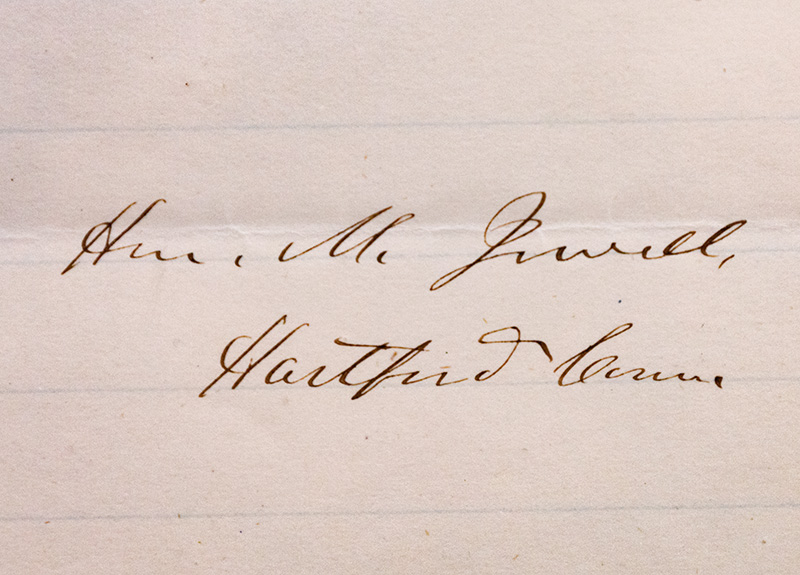 Hon. M. Jewell,
Hartford Conn.